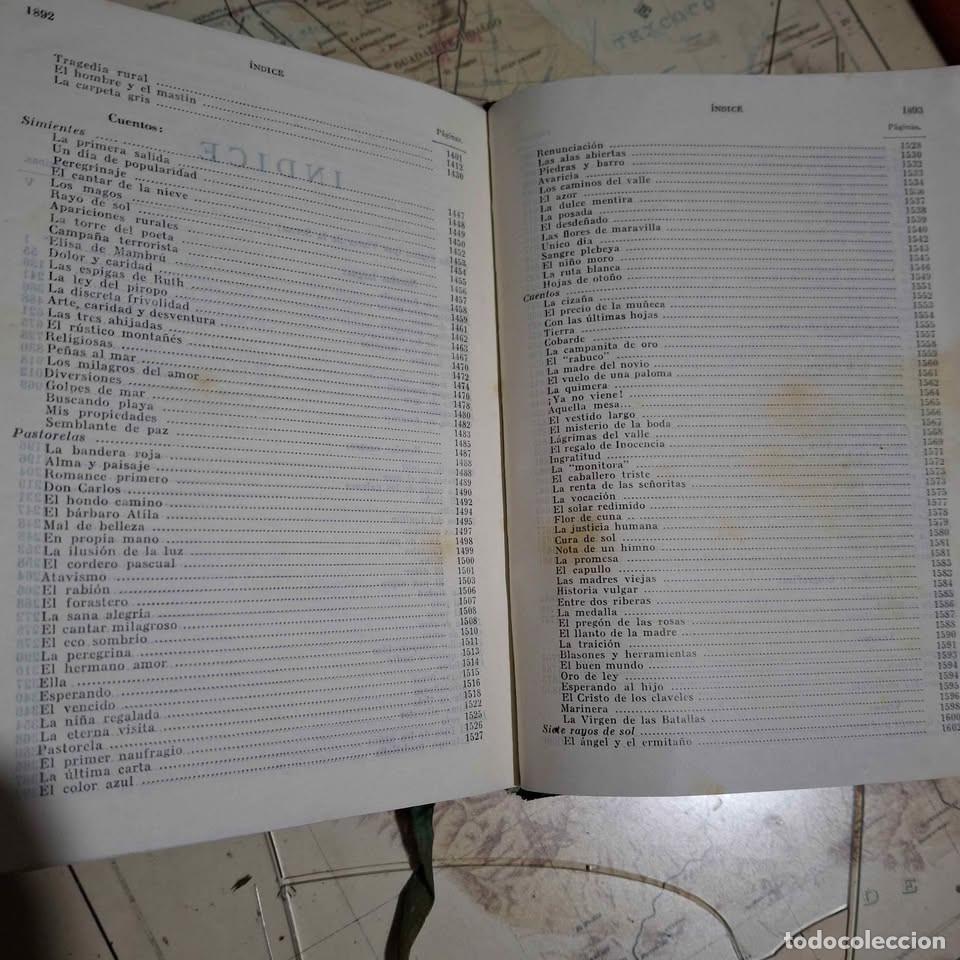 1892
ÍNDICE
Tragedia rural
El hombre y el mastín
La carpeta gris
Cuentos:
Simientes
La primera salida
Un día de popularidad
Peregrinaje
El cantar de la nieve
Los magos
Rayo de sol
Apariciones rurales
La torre del poeta
Campaña terrorista
Elisa de Mambrú
Dolor y caridad
Las espigas de Ruth
La ley del piropo
La discreta frivolidad
Arte, caridad y desventura
Las tres ahijadas
El rústico montañés
Religiosas
Peñas al mar
Los milagros del amor
Diversiones
Golpes de mar
Buscando playa
Mis propiedades
Semblante de paz
Pastorelas
La bandera roja
Alma y paisaje
Romance primero
Don Carlos
El hondo camino
El bárbaro Atila
Mal de belleza
En propia mano
La ilusión de la luz
El cordero pascual
Atavismo
El rabión
El forastero
La sana alegría
El cantar milagroso
El eco sombrío
La peregrina
El hermano amor
Ella
Esperando
El vencido
La niña regalada
La eterna visita
Pastorela
El primer naufragio
La última carta
El color azul
Páginas.
1401
1412
1430
1447
1448
1449
1450
1452
1453
1454
1455
1457
1458
1459
1461
1463
1467
1470
1472
1474
1476
1478
1480
1482
1483
1485
1487
1488
1488
1489
1490
1492
1494
1495
1497
1498
1499
1500
1501
1503
1506
1507
1508
1508
1510
1511
1513
1514
1515
1516
1518
1522
1525
1526
1527
ÍNDICE
1893
Páginas.
Renunciación
Las alas abiertas
Piedras y barro
Avaricia
Los caminos del valle
El azor
La dulce mentira
La posada
El desdeñado
Las flores de maravilla
Unico día
Sangre plebeya
El niño moro
La ruta blanca
Hojas de otoño
Cuentos
La cizaña
El precio de la muñeca
Con las últimas hojas
Tierra
Cobarde
La campanita de oro
El "rabuco"
La madre del novio
El vuelo de una paloma
La quimera
¡Ya no viene!
Aquella mesa...
El vestido largo
El misterio de la boda
Lágrimas del valle
El regalo de Inocencia
Ingratitud
La "monitora"
El caballero triste
La renta de las señoritas
La vocación
El solar redimido
Flor de cuna
La justicia humana
Cura de sol
Nota de un himno
La promesa
El capullo
Las madres viejas
Historia vulgar
Entre dos riberas
La medalla
El pregón de las rosas
El llanto de la madre
La traición
Blasones y herramientas
El buen mundo
Oro de ley
Esperando al hijo
El Cristo de los claveles
Marinera
La Virgen de las Batallas
Siete rayos de sol
El ángel y el ermitaño
1528
1530
1532
1533
1534
1536
1537
1538
1539
1540
1542
1543
1545
1546
1549
1551
1552
1553
1554
1555
1557
1558
1559
1560
1561
1562
1564
1565
1566
1567
1568
1569
1571
1572
1573
1573
1575
1577
1577
1579
1580
1581
1582
1583
1584
1585
1586
1587
1588
1590
1591
1593
1594
1594
1595
1596
1598
1600
1602
todocoleccion